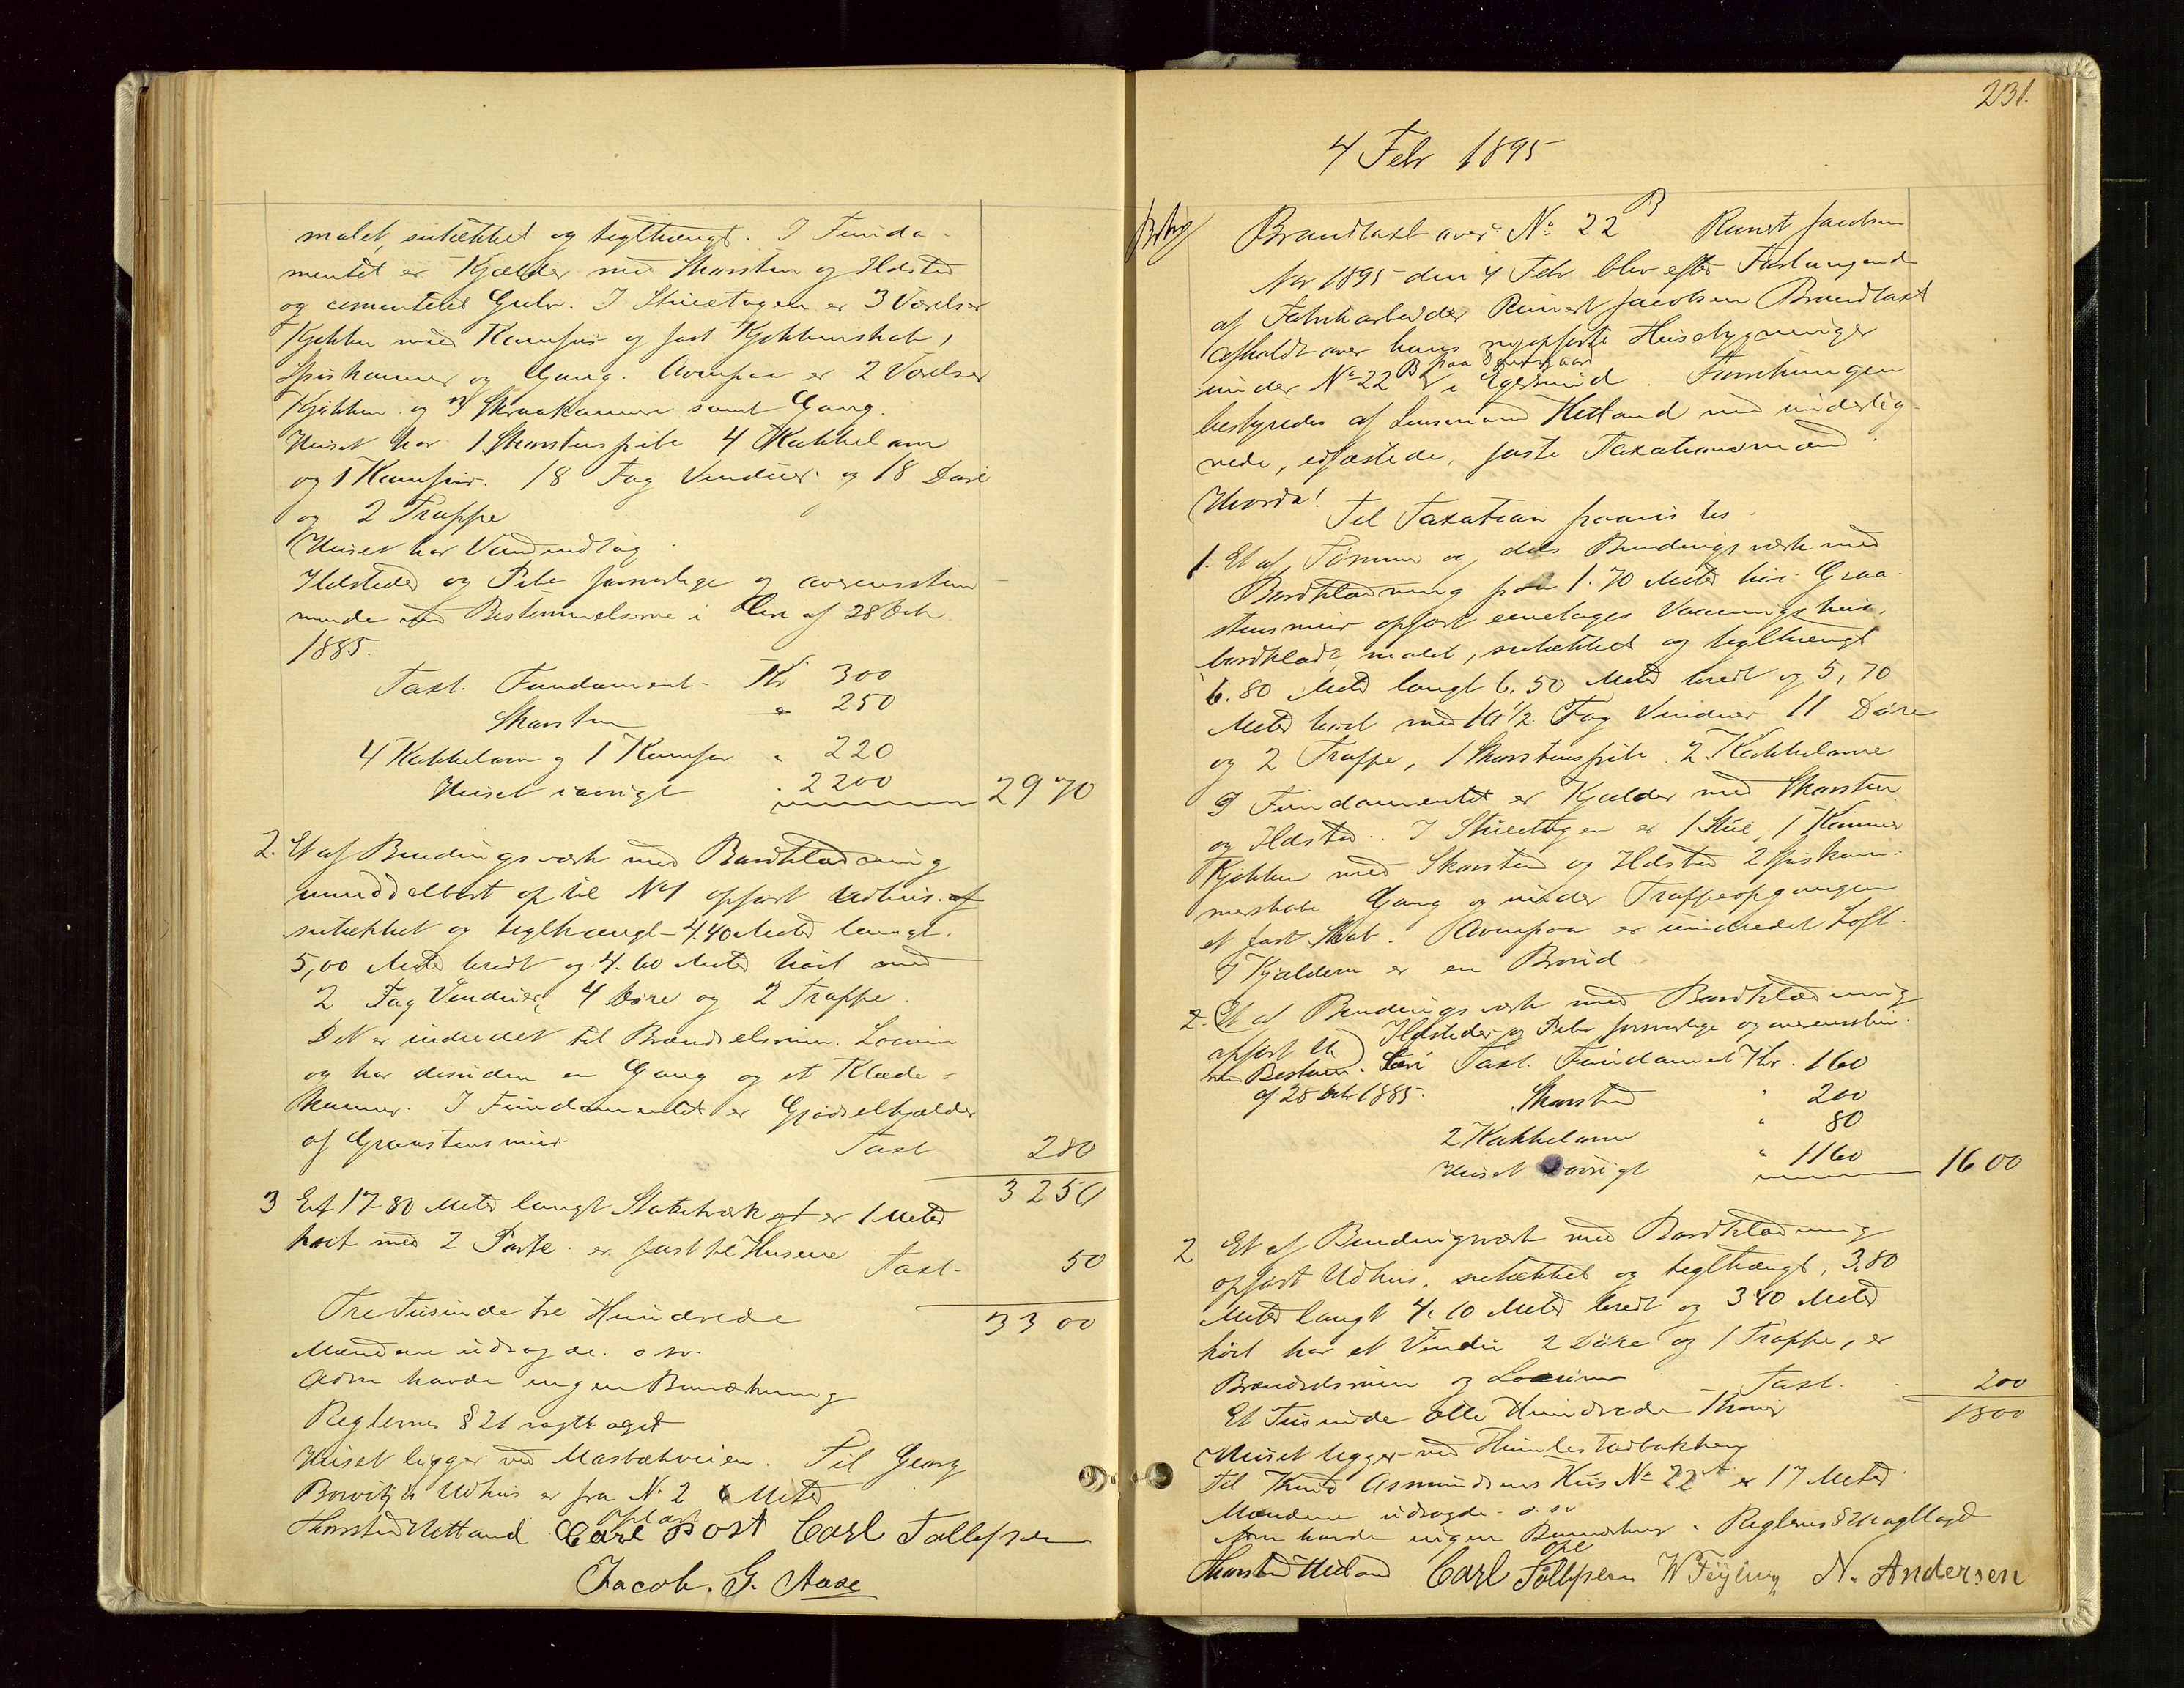 malet, sutækket og teglhængt. I Funda-
mentet er Kjælder med Skorsten og Ildsted
og cementeret Gulv. I Stueetagen er 3 Værelser
Kjøkken med Komfur og fast Kjøkkenskab,
Spiskammer og Gang. Ovenpaa er 2 Værelser
Kjøkken og 3 Skraakammere samt Gang.
Huset har 1 Skorstenspibe 4 Kakkelovne
og 1 Komfur. 18 Fag Vinduer og 18 Døre
og 2 Trappe
Huset har Vandindlæg.
Ildsteder og Pibe forsvarlige og overensstem
mende med Bestemmelserne i Lov af 28 Octr
1885.
Taxt. Fundament Kr 300
Skorsten " 250
4 Kakkelovn og 1 Komfur " 220
Huset iøvrigt " 2200 2970
2. Et af Bindingsværk med Bordklædning
umiddelbart op til No 1 opført Udhus
sutækket og teglhængt 4.40 Meter langt,
5,00 Meter bredt og 4.60 Meter höit med
2 Fag Vinduer, 4 Døre og 2 Trappe.
Det er indredet til Brændselsrum. Locum
og har desuden en Gang og et Klæde-
kammer. I Fundamentet er Gjødselkjælder
af Graastensmur. Taxt 280
3250
3 Et 17-80 Meter langt Stakitværk er 1 Meter
höit med 2 Porte er fast til Husene Taxt. 50
Tre Tusinde tre Hundrede 3300
Mændene udsagde. o sv.
Ingen havde engen Bemærkning
Reglernes § 21 iagttaget
Huset ligger ved Mosbækveien. Til Georg
Udhus er fra No 2 6 Meter
opl art
Thorsten Hetland Carl Post Carl Tollefsen
Jacob. G. Aase
231.
4 Febr 1895
Brandtaxt over No 22 B Reinert Jacobsen
Aar 1895 den 4 Febr blev efter Forlangende
af Fabrikarbeider Reinert Jacobsen Brandtaxt
afholdt over hans nyopførte Husebygninger
under No 22 B i Egersund. Forretningen
bestyredes af Lensmand Hetland med underteg-
nede, edfæstede, faste Taxationsmænd.
Hvorda!
Til Taxation paavistes.
1. Et af Tømmer og dels Bindingsværk med
Bordklædning paa 1.70 Meter höi Graa-
stensmur opført eenetages Vaaningshus,
bordklædt, malet, sutækket og teglhængt
6.80 Meter langt 6.50 Meter bredt og 5,70
Meter höit med 10 1/2 Fag Vinduer 11 Döre
og 2 Trappe, 1 Skorstenspibe 2 Kakkelovne
I Fundamentet er Kjælder med Skorsten
og Ildsted. I Stueetagen er 1 Stue, 1 Kammer
Kjøkken med Skorsten og Ildsted 2 Spiskam-
merskabe Gang og under Trappeopgangen
et fast Skab. Ovenpaa er uindredet Loft.
I Kjælderen er en Brønd.
2. Et af Bindingsværk med Bordklædning
opført U) Ildsteder og Pibe forsvarlige og overensstem.
med Bestem. Lov Taxt. Fundamet Kr. 160
af 28 Octr 1885. Skorsten " 200
2 Kakkelovne " 80
Huset iøvrigt " 1160 1600
2 Et af Bindingværk med Bordklædning
opført Udhus, sutækket og teglhængt, 3,80
Meter langt 4,10 Meter bredt og 3 40 Meter
höit har et Vindu 2 Döre og 1 Trappe, er
Brændselsrum og Locum Taxt. 200
Et Tusinde otte Hundrede Kroner 1800
Huset ligger ved Humlestadbakken
Til Knud Asmundsens Hus No 22 er 17 Meter
Mændene udsagde o. sv
havde ingen Bemærkn. Reglernes § 21 iagttaget
opl
Thorsten Hetland Carl Tollefsen W Feyling N. Andersen